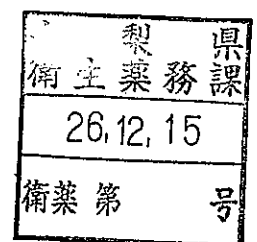 梨県
衛生薬務課
26.12.15
衛薬第 号